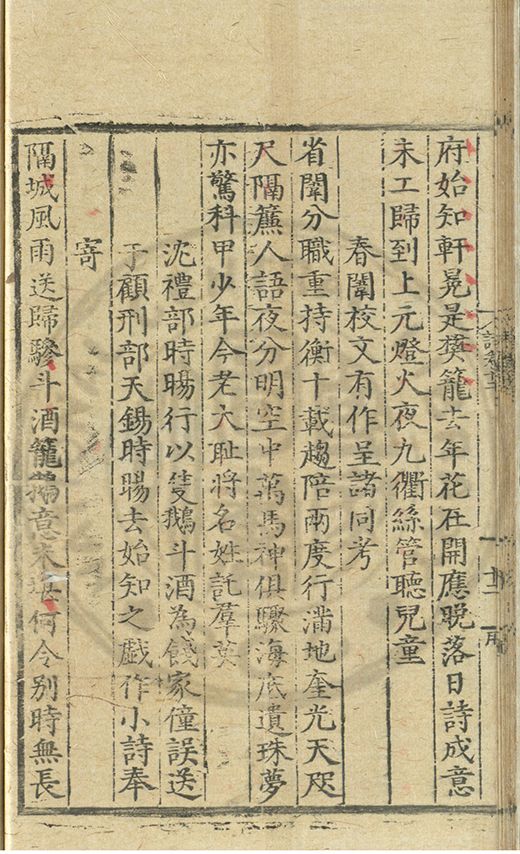 府始知軒冕是樊籠去年花在開應晚落日詩成意
未工歸到上元燈火夜九衢絲管聽兒童
春闈校文有作呈諸同考
省闈分職重持衡十載趨陪兩度行滿地奎光天咫
尺隔簾人語夜分明空中萬馬神俱驟海底遺珠夢
亦驚科甲少年今老大耻將名姓託羣英
沈禮部時暘行以隻鵝斗酒為餞家僮誤送
于顧刑部天錫時暘去始知之戯作小詩奉
寄
隔城風雨送歸驂斗酒籠鵝意未堪何令別時無長